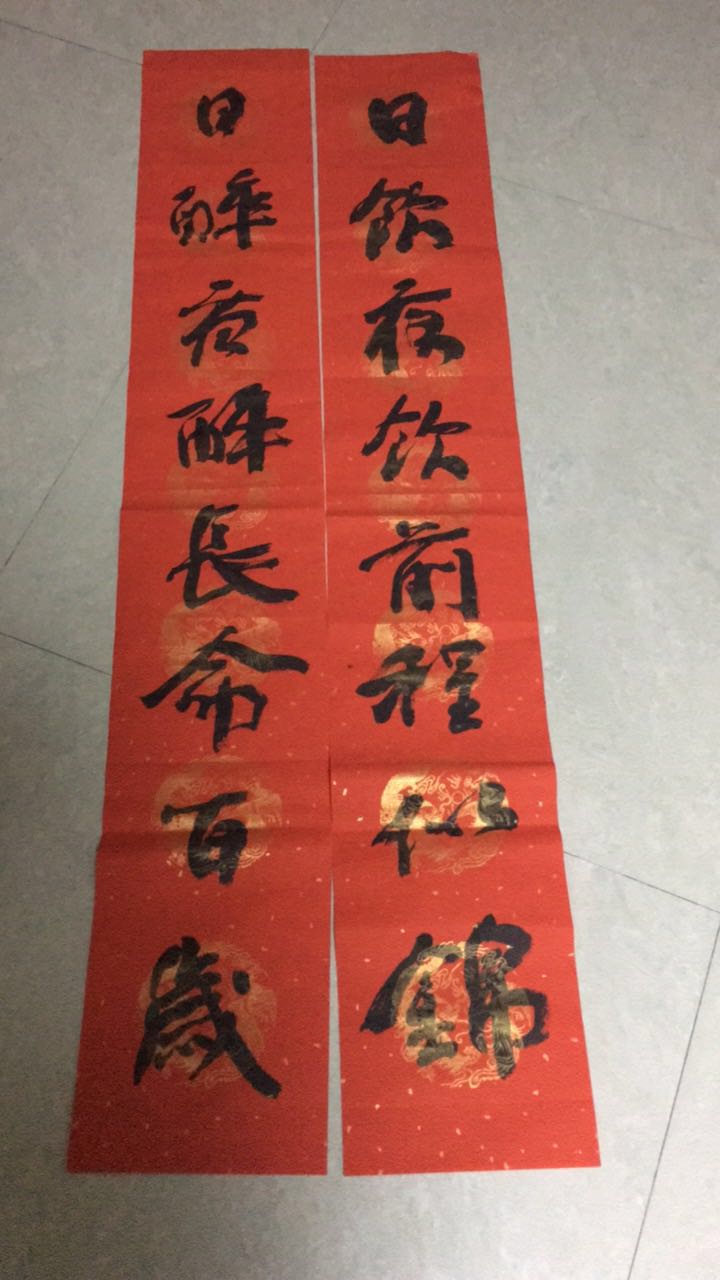 日飲夜飲前程似錦
日醉夜醉長命百歲